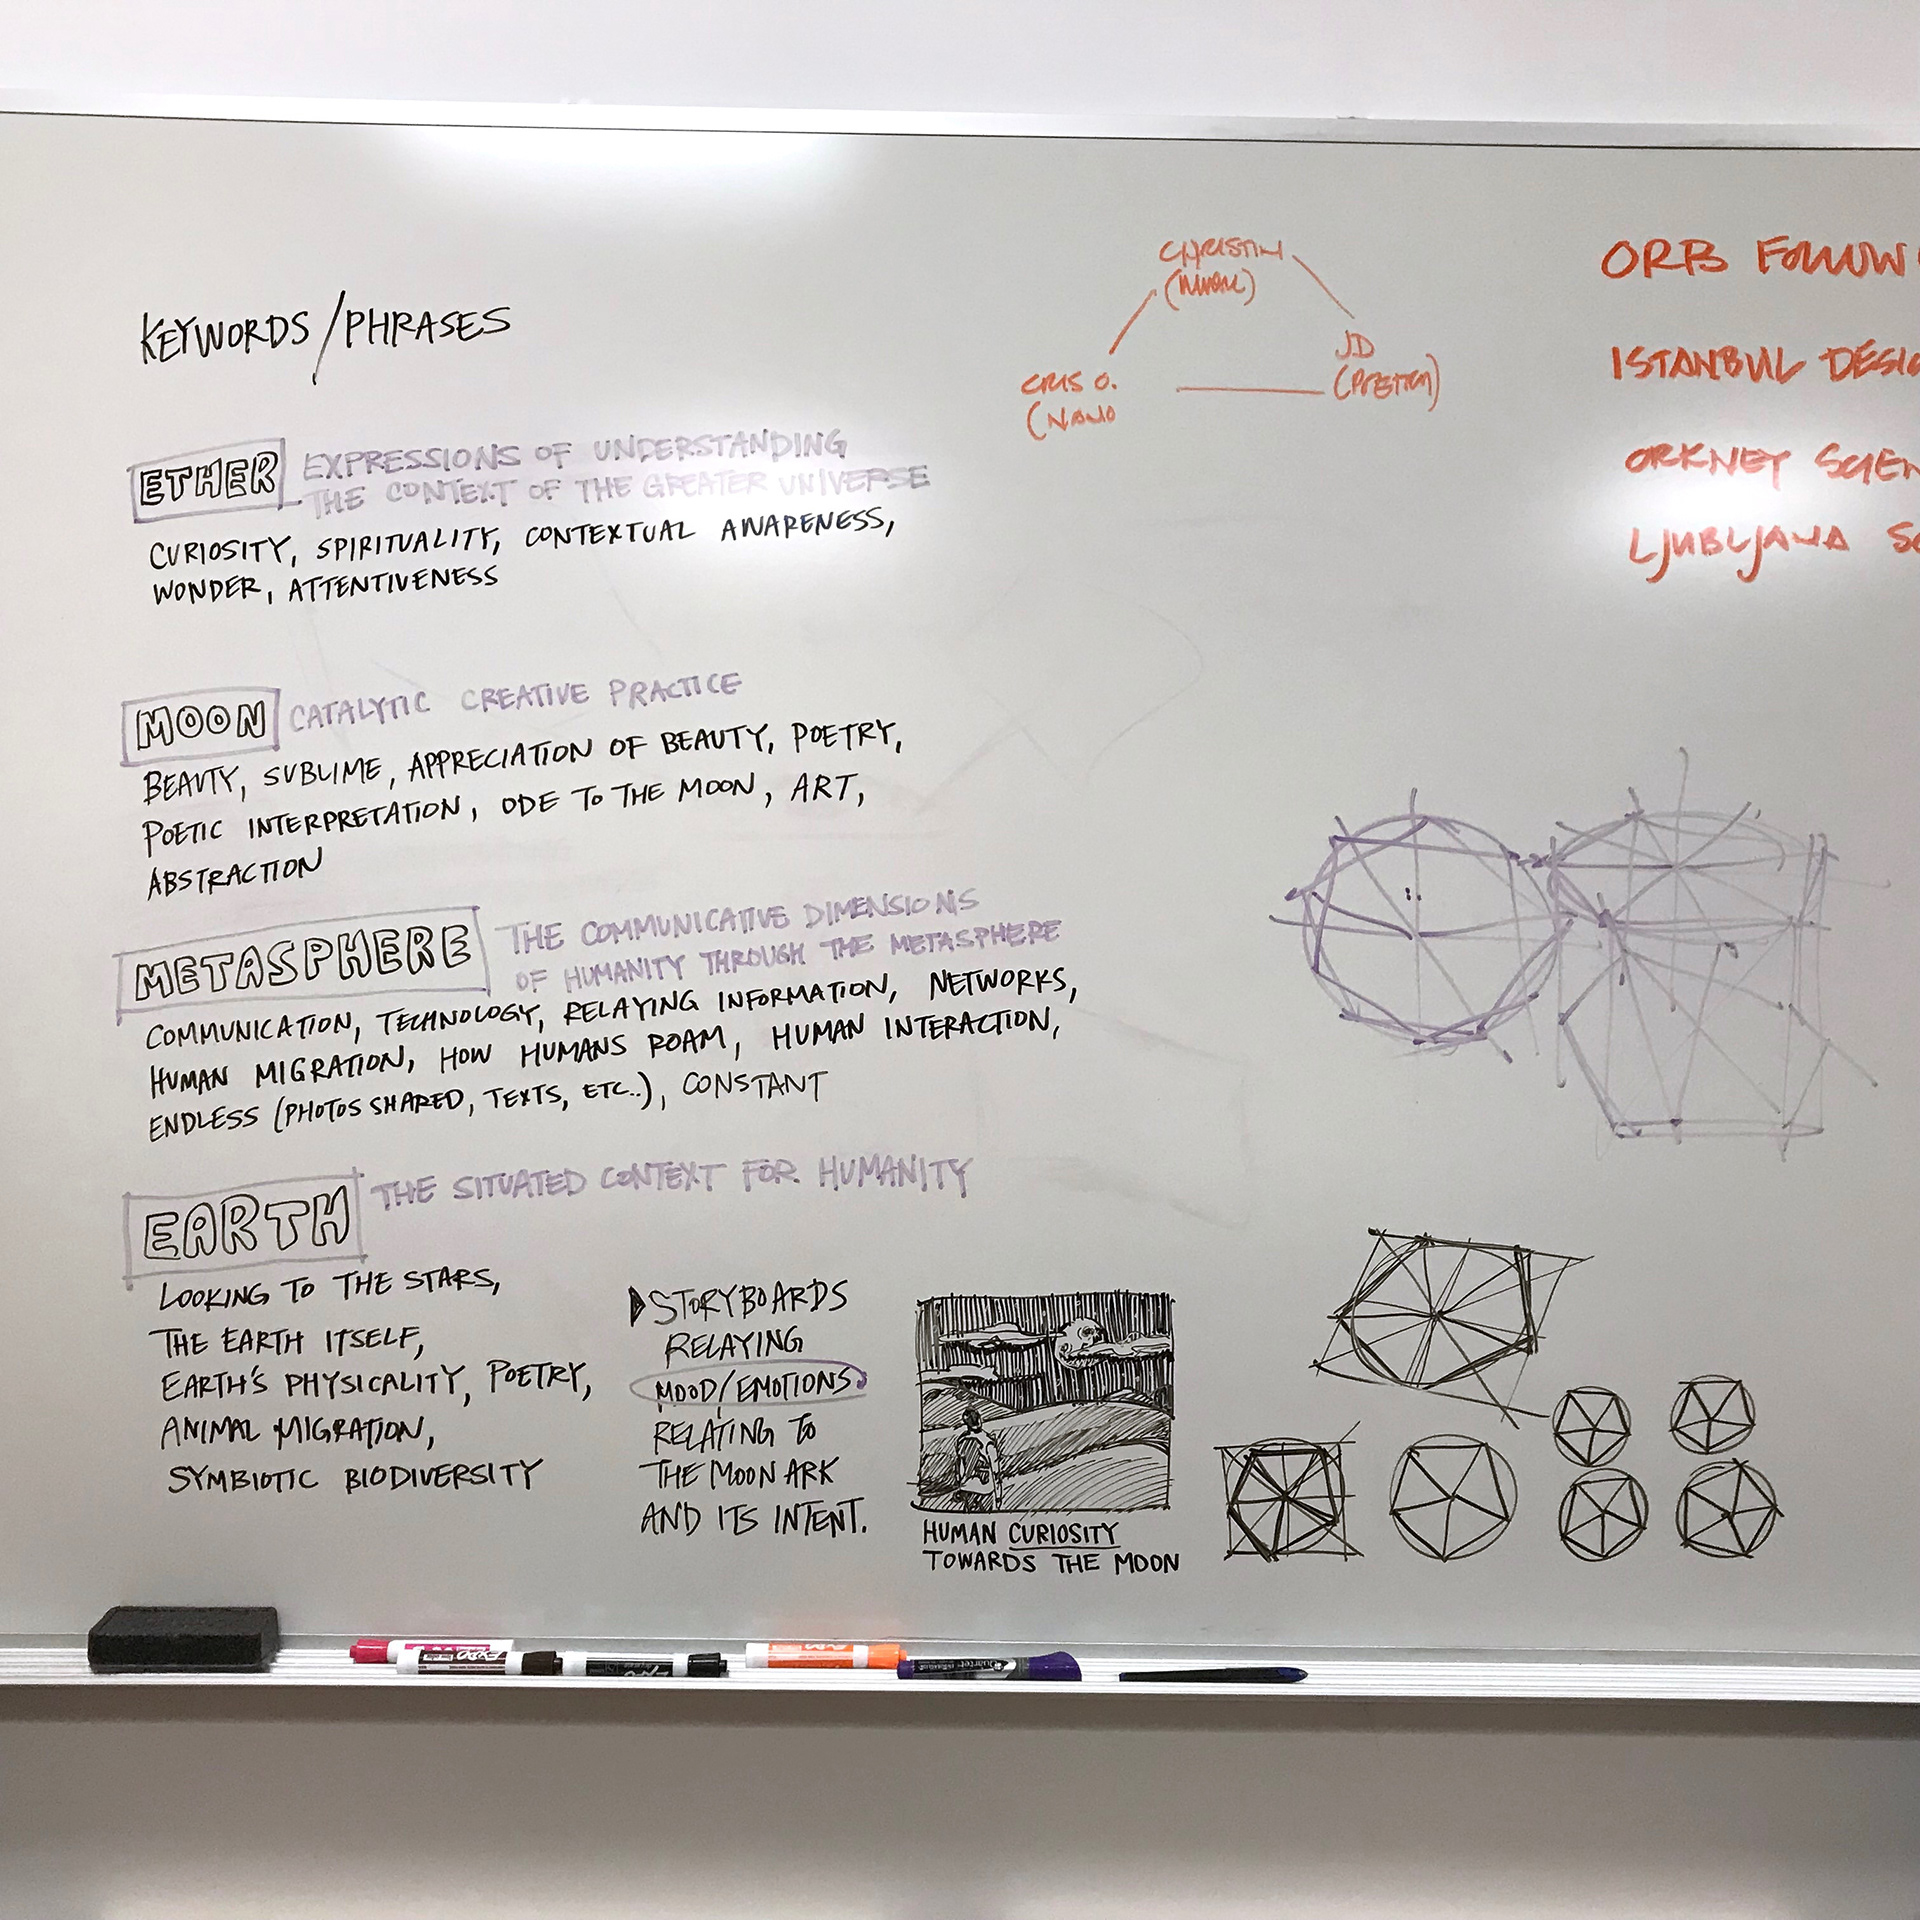 KEYWORDS/PHRASES
ETHER EXPRESSIONS OF UNDERSTANDING
THE CONTEXT OF THE GREATER UNIVERSE
CURIOSITY, SPIRITUALITY, CONTEXTUAL AWARENESS,
WONDER, ATTENTIVENESS
MOON CATALYTIC CREATIVE PRACTICE
BEAUTY, SUBLIME, APPRECIATION OF BEAUTY, POETRY,
POETIC INTERPRETATION, ODE TO THE MOON, ART,
ABSTRACTION
METASPHERE THE COMMUNICATIVE DIMENSIONS
OF HUMANITY THROUGH THE METASPHERE
COMMUNICATION, TECHNOLOGY, RELAYING INFORMATION, NETWORKS,
HUMAN MIGRATION, HOW HUMANS ROAM, HUMAN INTERACTION,
ENDLESS (PHOTOS SHARED, TEXTS, ETC..), CONSTANT
EARTH THE SITUATED CONTEXT FOR HUMANITY
LOOKING TO THE STARS,
THE EARTH ITSELF,
EARTH'S PHYSICALITY, POETRY,
ANIMAL MIGRATION,
SYMBIOTIC BIODIVERSITY
STORYBOARDS
RELAYING
MOOD/EMOTIONS
RELATING TO
THE MOON ARK
AND ITS INTENT.
HUMAN CURIOSITY
TOWARDS THE MOON
CHRISTIN
JD
CRIS O.
(NANO
ORB FOLLOW
ISTANBUL DESIG
ORKNEY SCIEN
LJUBLJANA SC
EXPO
Quartet